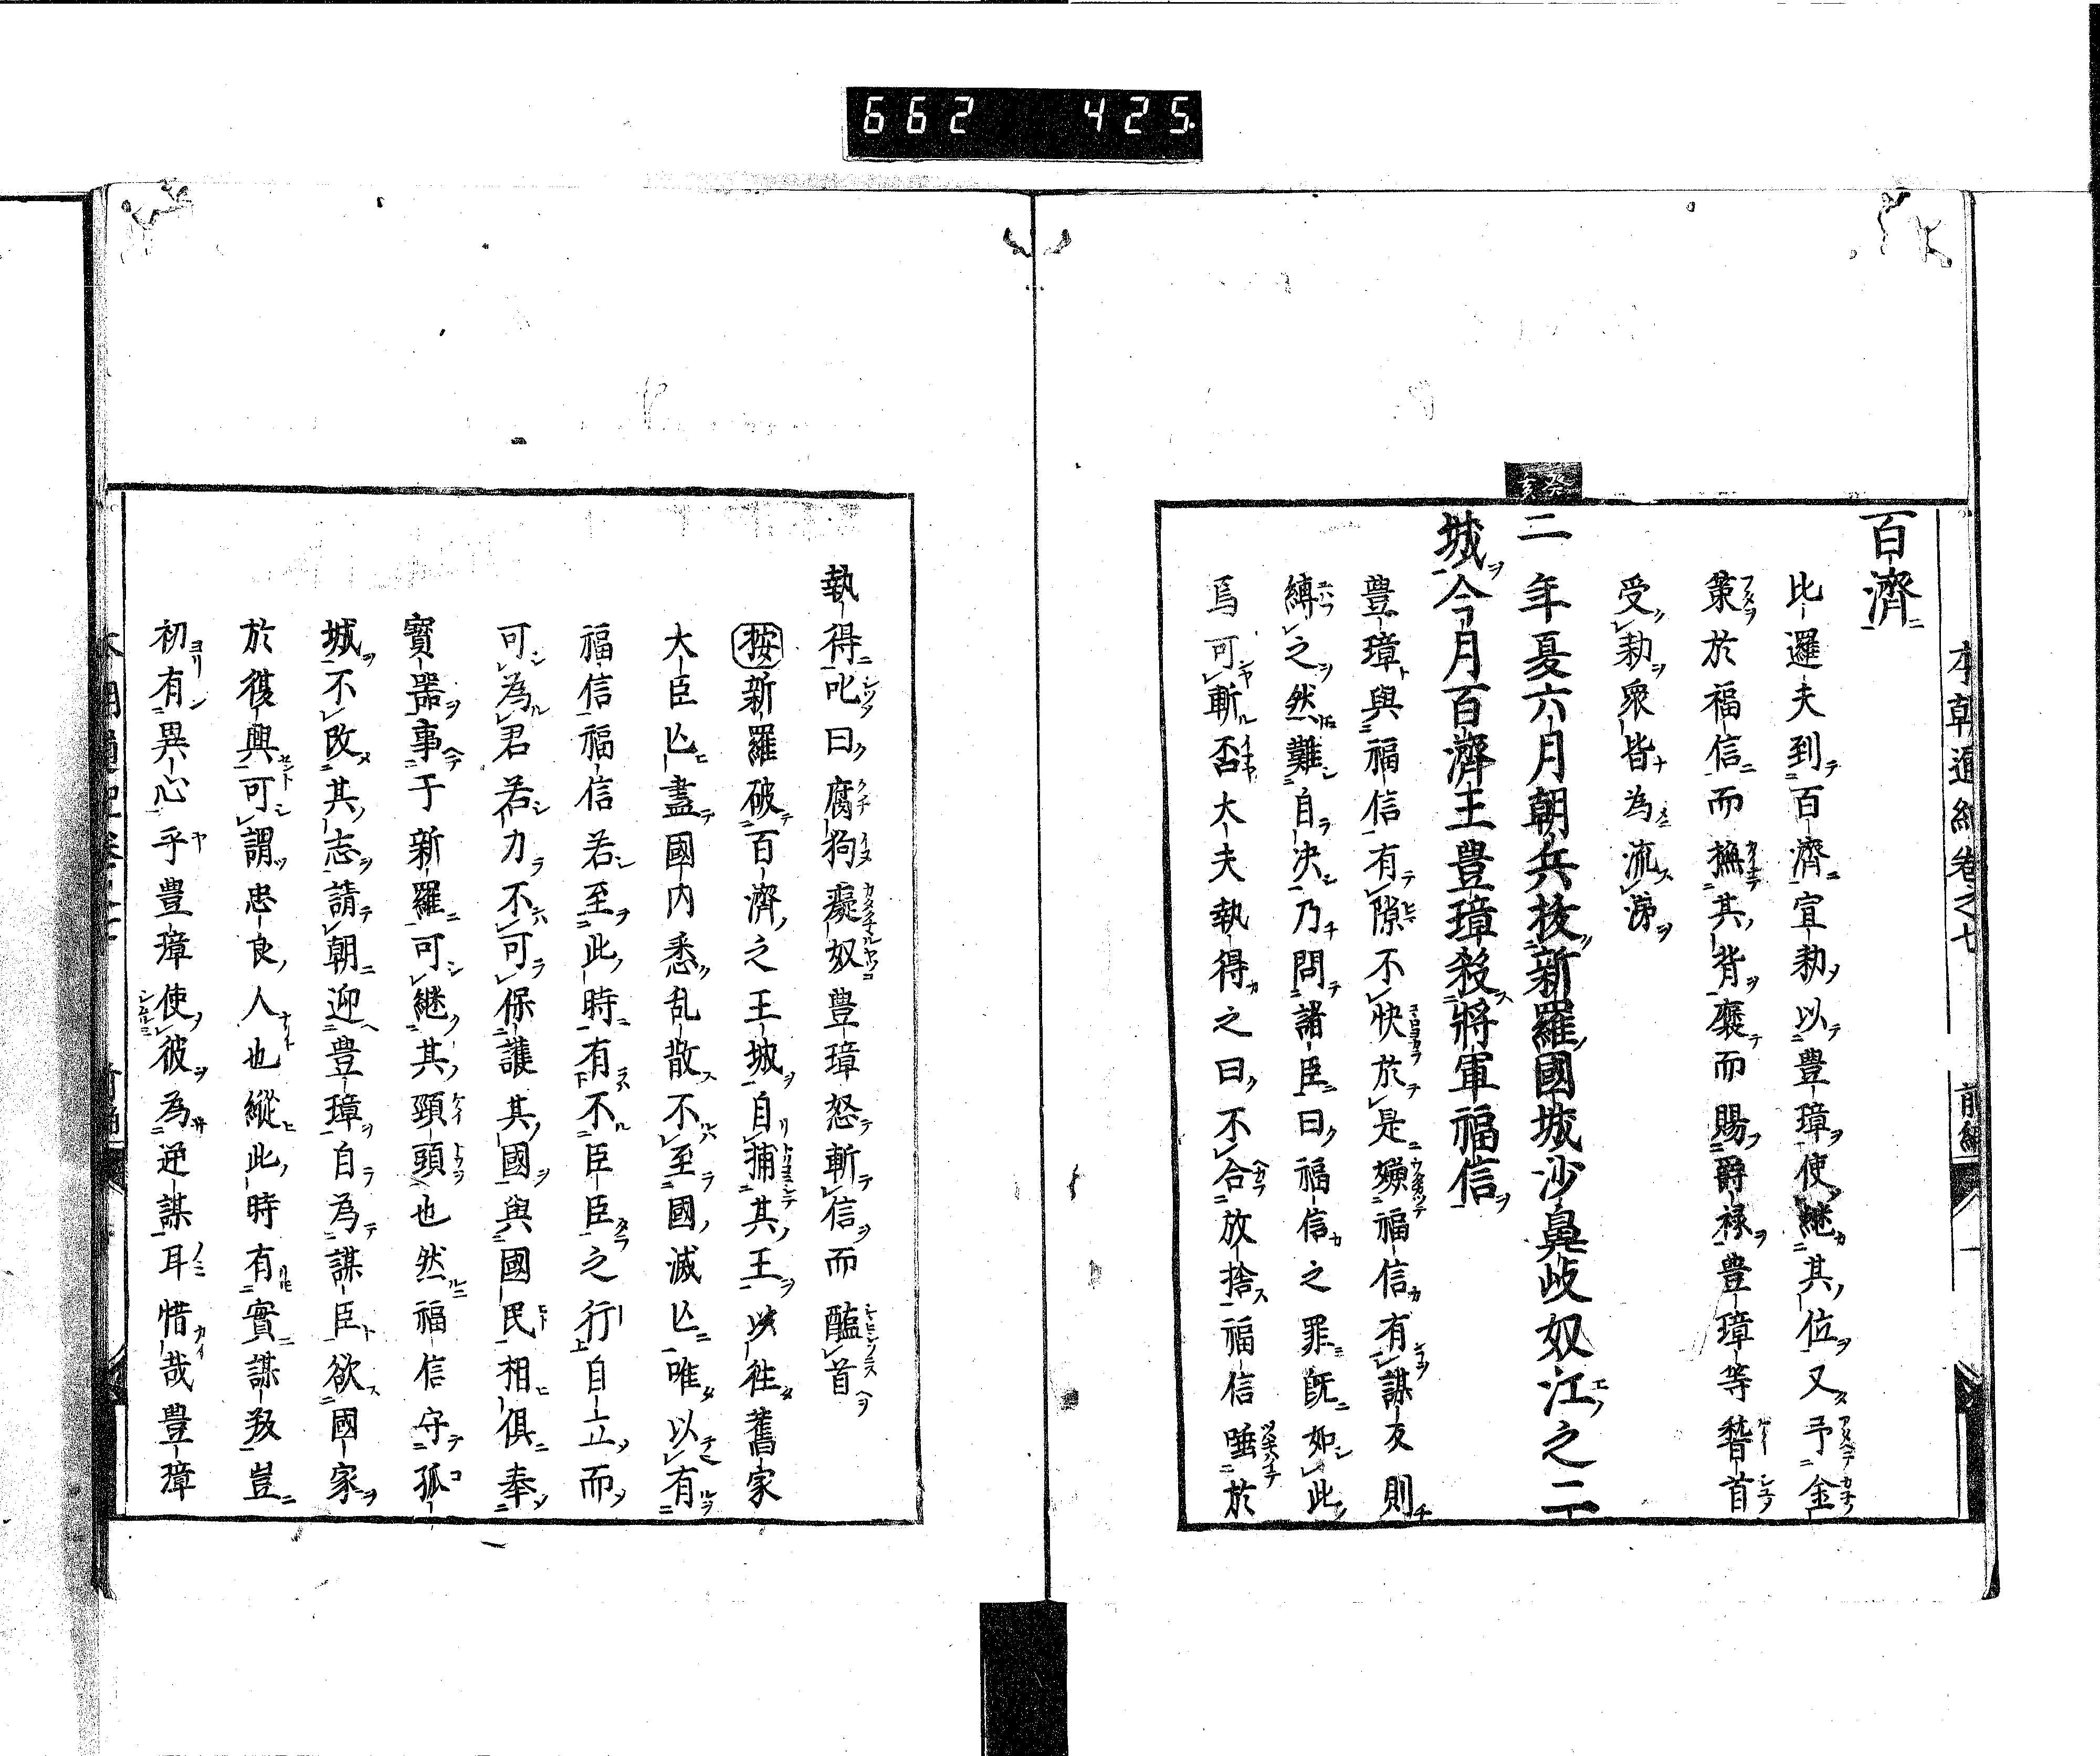 662 425
本朝通紀卷之七 前編
百濟
比邏夫到百濟宣勅以豊璋使継其位又予金
策於福信而撫其背褒而賜爵禄豊璋等稽首
受勅衆皆為流涕
癸亥
二年夏六月朝兵抜新羅國城沙鼻歧奴江之二
城今月百濟王豊璋殺將軍福信
豊璋與福信有隙不快於是嫌福信有謀反則
縛之然難自决乃問諸臣曰福信之罪既如此
焉可斬否大夫執得之曰不合放捨福信唾於
執得叱曰腐狗癡奴豊璋怒斬信而醢首
按新羅破百濟之王城自捕其王以徃舊家
大臣亾盡國内悉乱散不至國滅亾唯以有
福信福信若至此時有不臣臣之行自立而
可為君若力不可保護其國與國民相俱奉
寳噐事于新羅可継其頸頭也然福信守孤
城不改其志請朝迎豊璋自為謀臣欲國家
於復興可謂忠良人也縱此時有實謀叛豈
初有異心乎豊璋使彼為逆謀耳惜哉豊璋